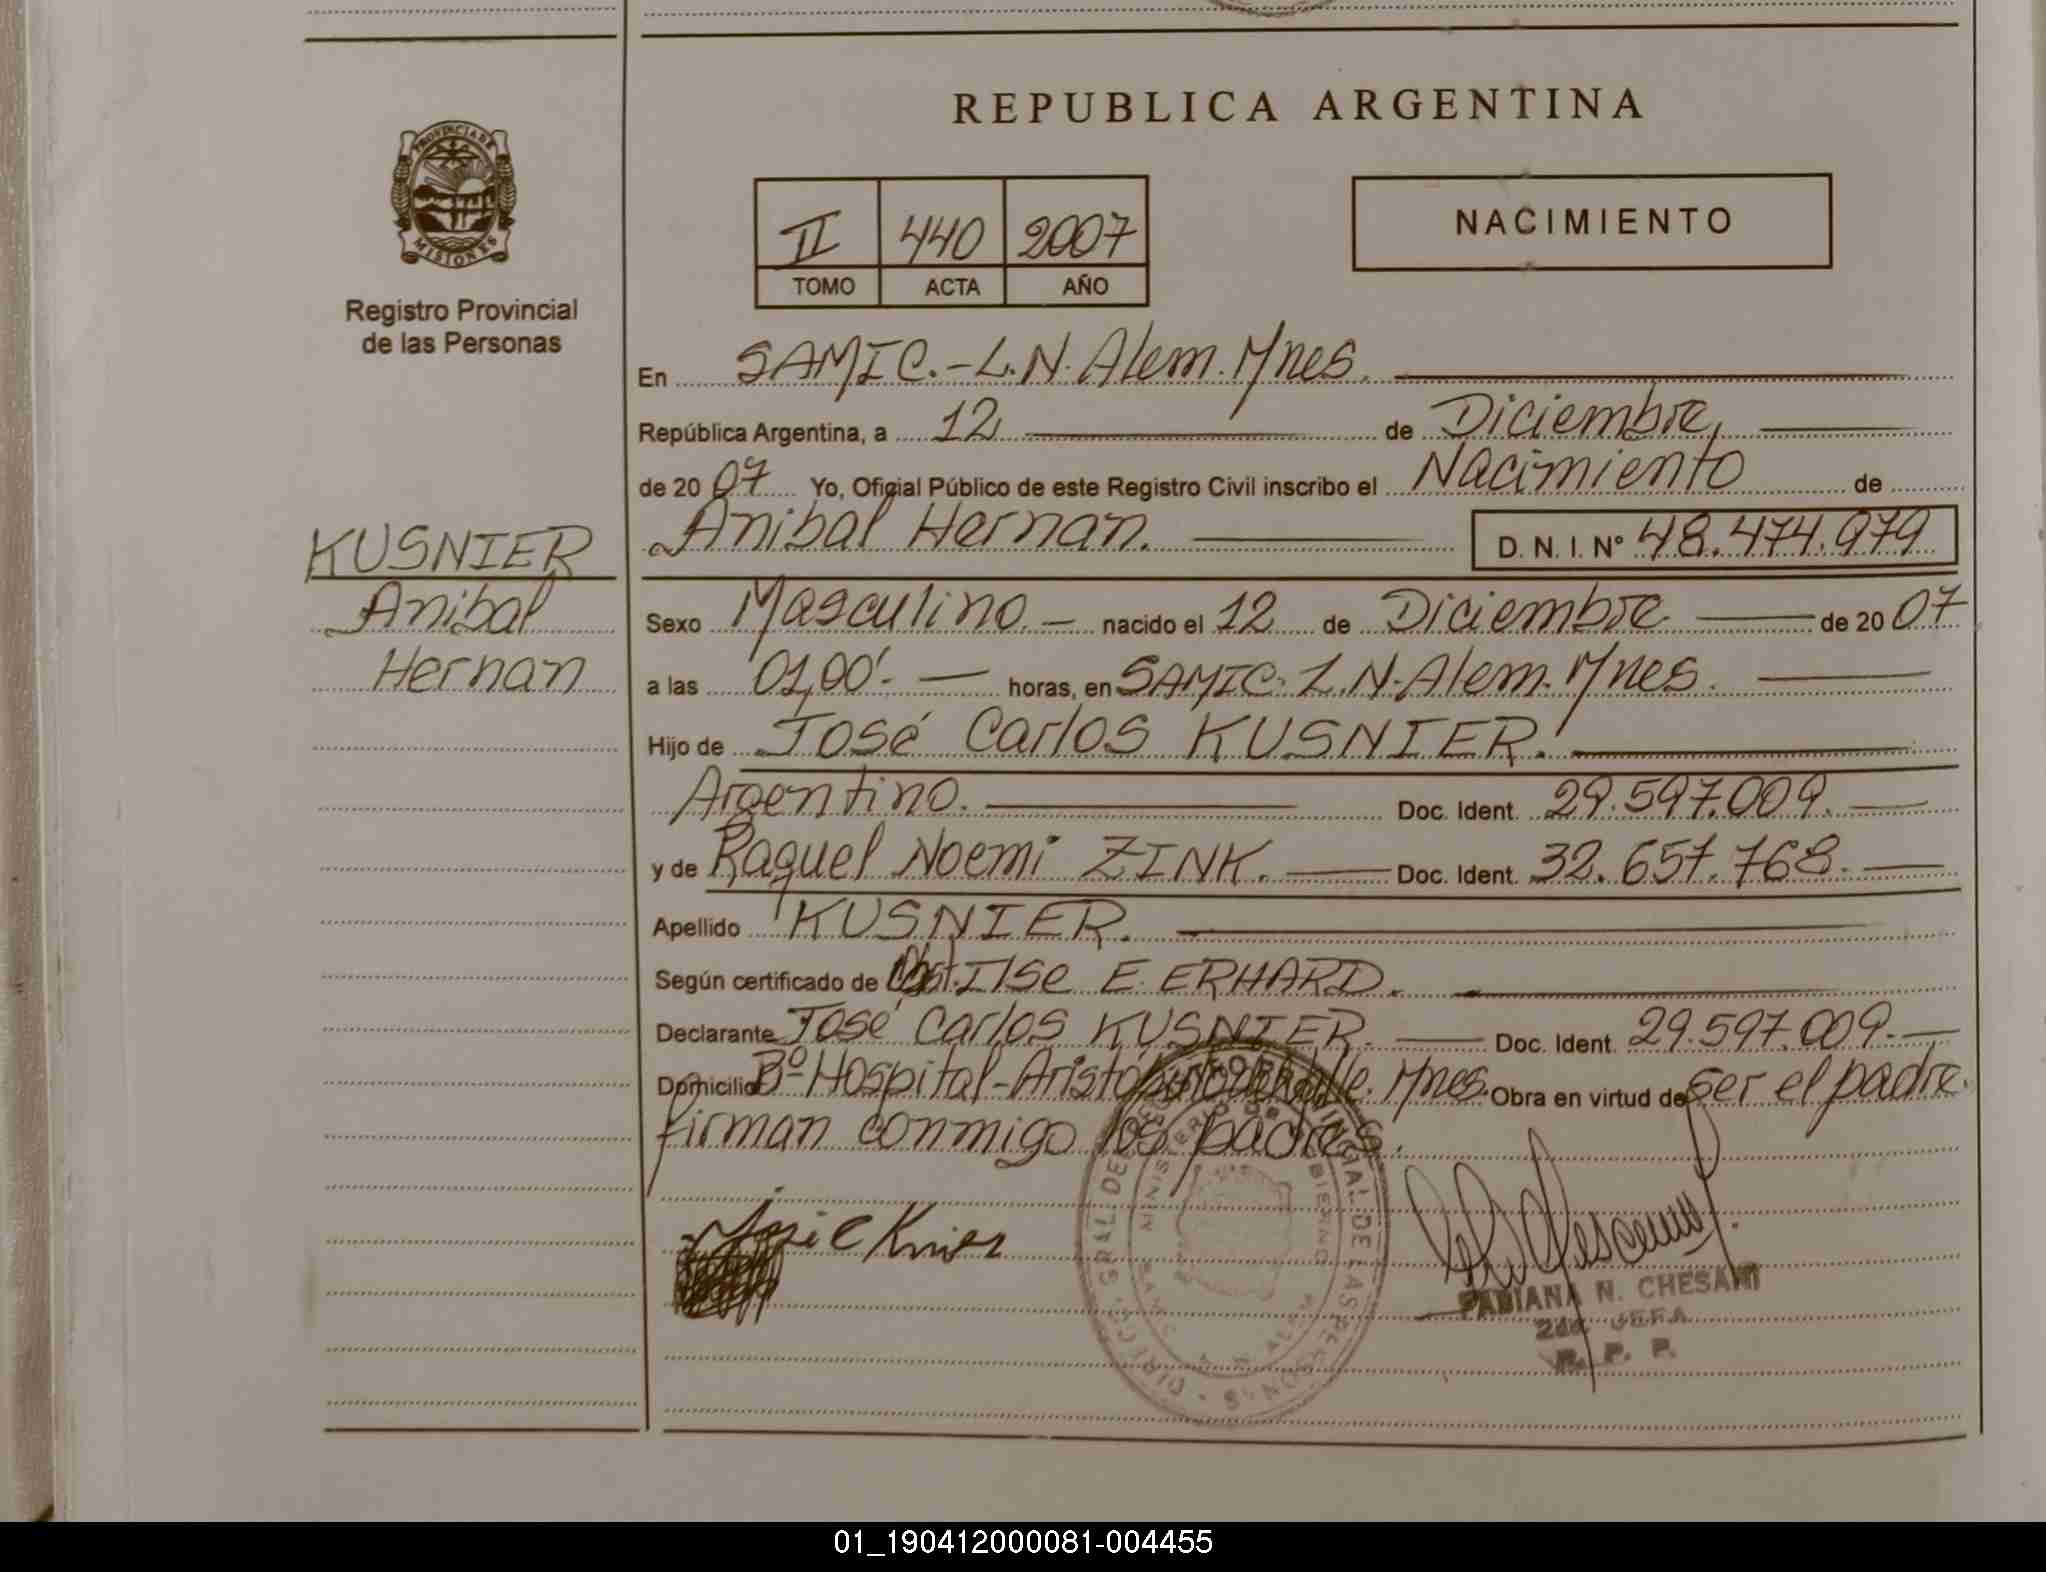 REPUBLICA ARGENTINA
PROVINCIA DE
MISIONES
Registro Provincial
de las Personas
II 440 2007
TOMO ACTA AÑO
NACIMIENTO
En SAMIC.-L.N.Alem.Mnes.
República Argentina, a 12 de Diciembre,
de 2007 Yo, Oficial Público de este Registro Civil inscribo el Nacimiento de
Anibal Hernan. D. N. I. Nº 48.474.979
KUSNIER
Anibal
Hernan
Sexo Masculino. nacido el 12 de Diciembre de 2007
a las 01,00'. horas, en SAMIC. L.N.Alem.Mnes.
Hijo de José Carlos KUSNIER.
Argentino. Doc. Ident. 29.597.009.
y de Raquel Noemi ZINK. Doc. Ident. 32.657.768.
Apellido KUSNIER.
Según certificado de Obst. Ilse E. ERHARD.
Declarante José Carlos KUSNIER. Doc. Ident. 29.597.009.
Domicilio Bº Hospital-Aristóbulo del Valle. Mnes. Obra en virtud de ser el padre.
firman conmigo los padres.
FABIANA N. CHESANI
2da JEFA
R. P. P.
01_190412000081-004455